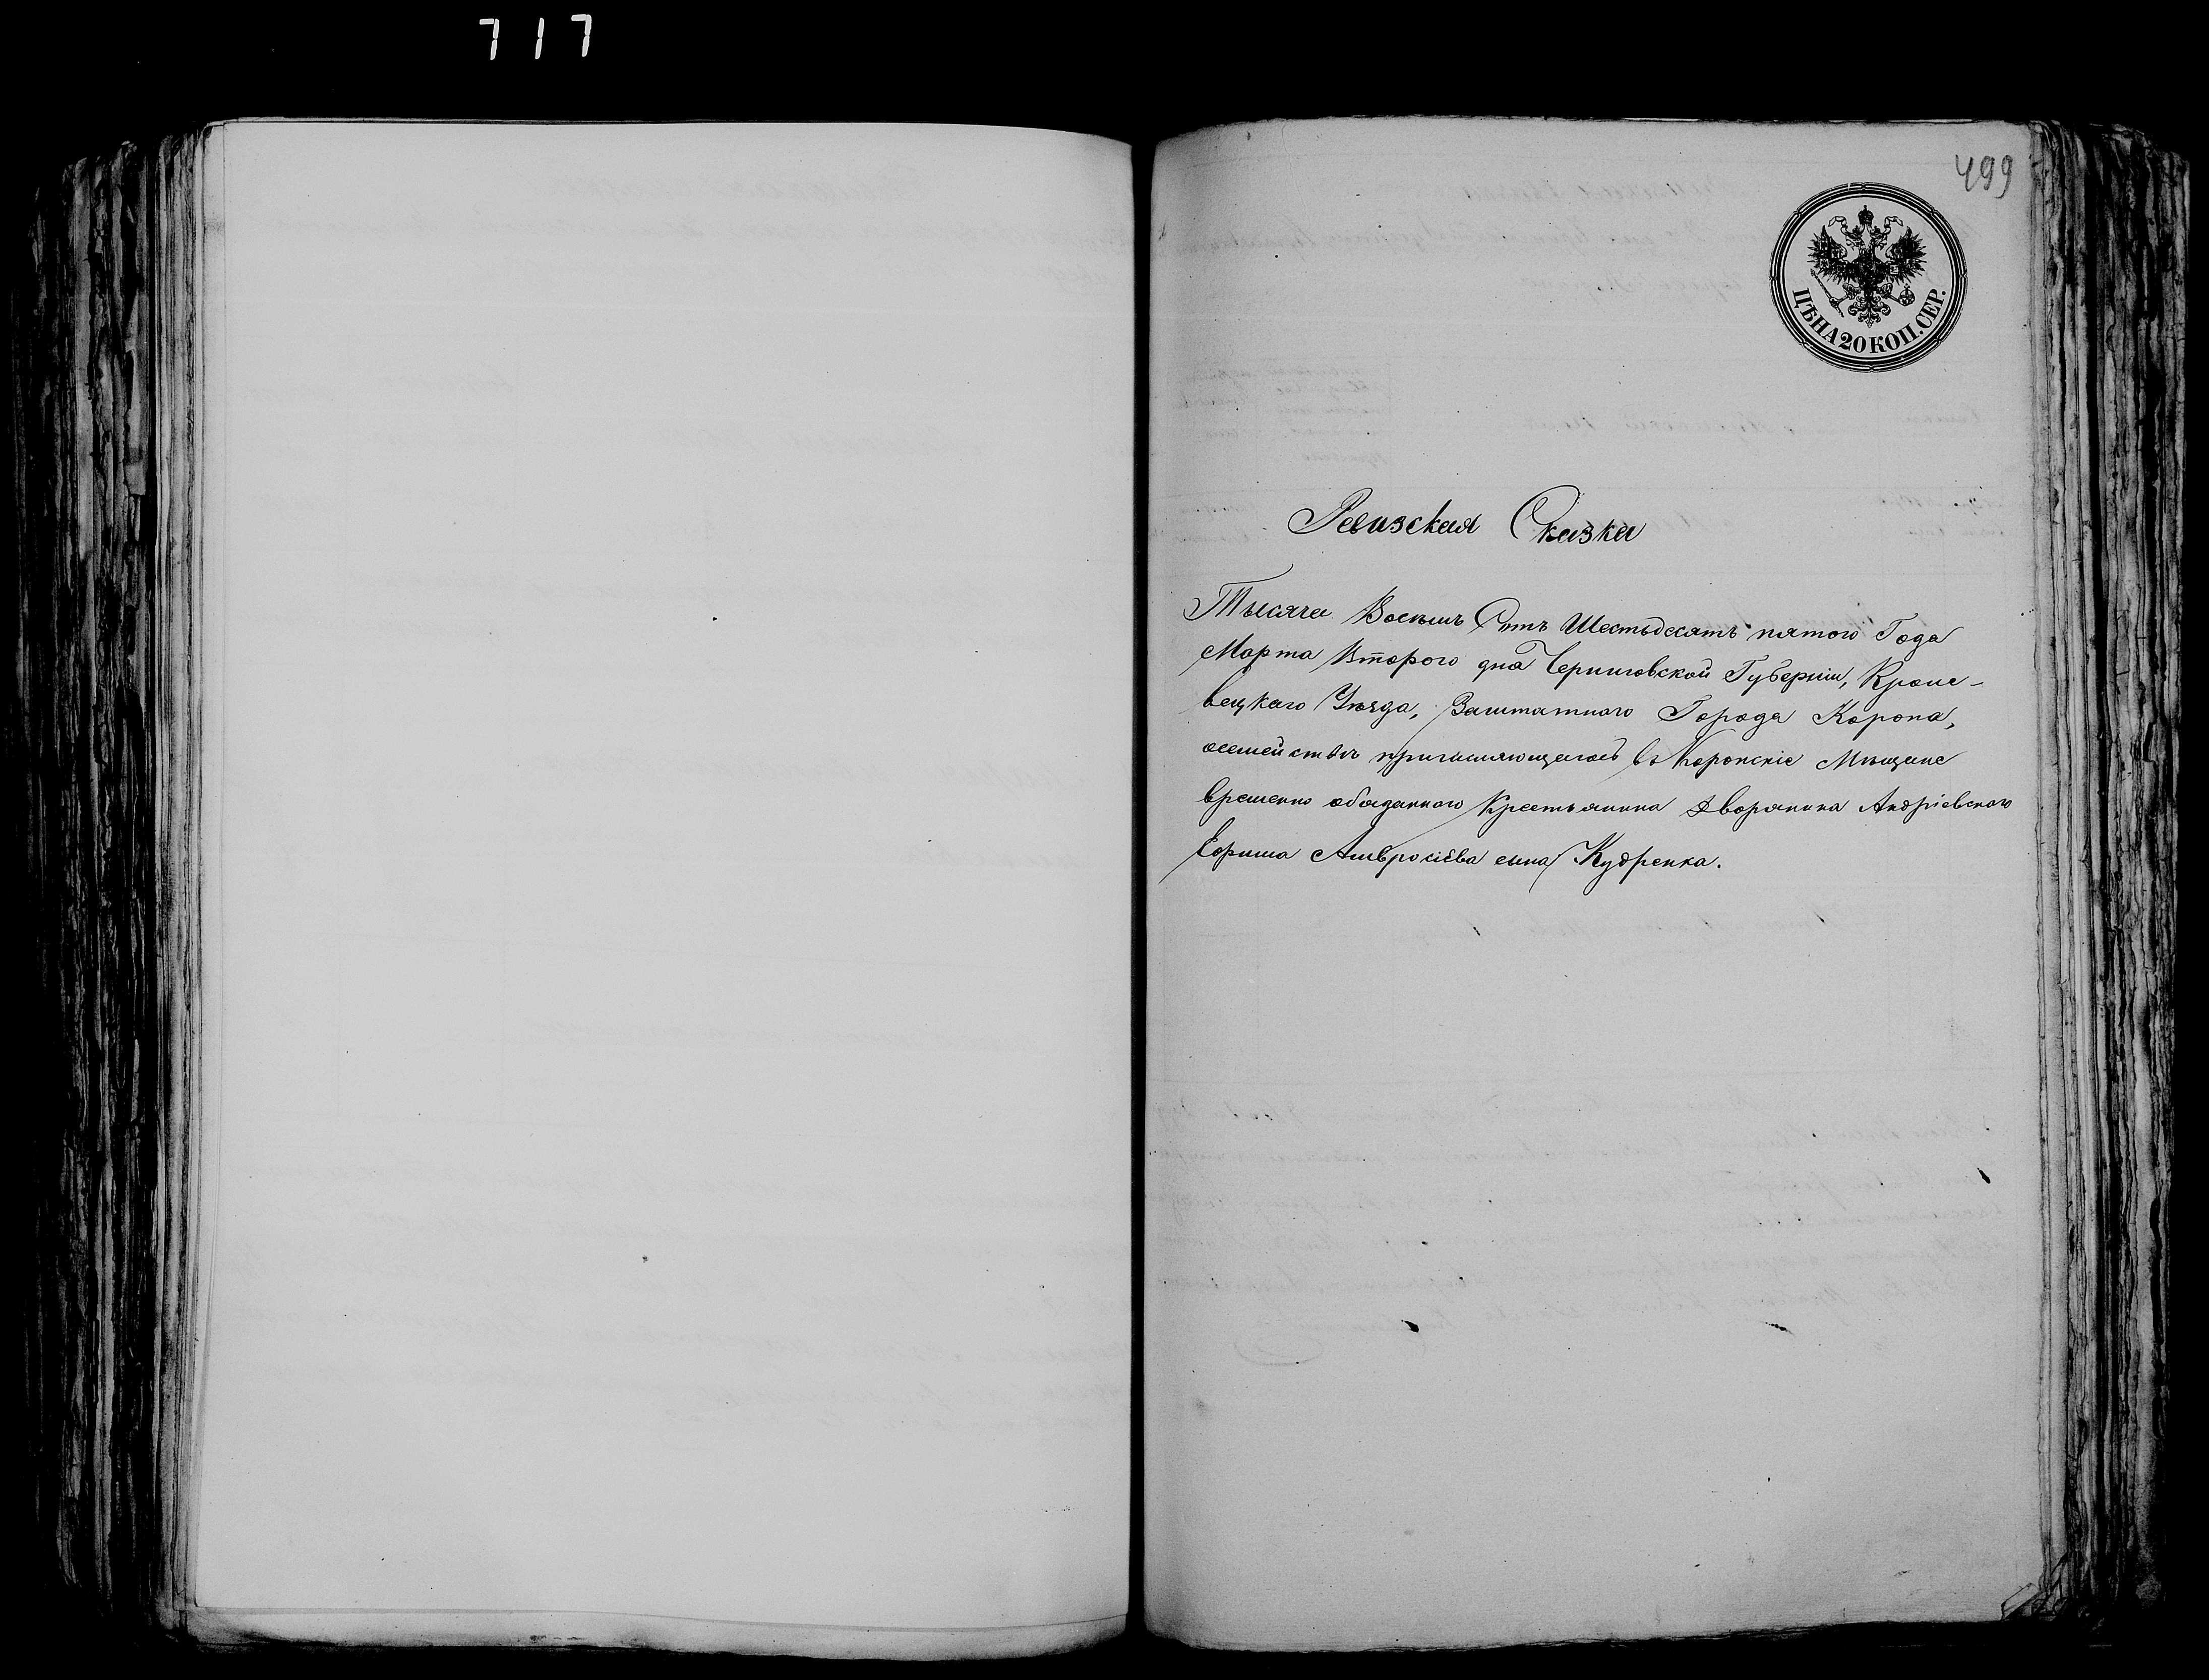 717
499
ЦѢНА 20 КОП. СЕР.
Ревизская Сказка
Тысяча Восемь Сотъ Шестьдесятъ пятого Года
Марта Второго дня Черниговской Губерніи, Кроле-
вецкаго Уѣзда, Заштатного Города Коропа,
осемействѣ причисляющагось въ Коропскіе Мѣщане
временно обязанного Крестьянина Дворянина Андріевского
Ефима Амвросіева сына Кудренка.